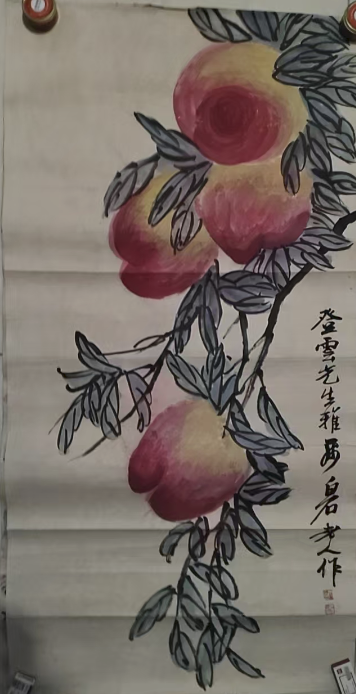 登雲先生雅屬白石老人作